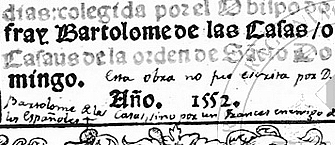 dias:colegida por el Obispo dō
fray Bartolome de las Casas/o
Casaus de la orden de Sācto Do
mingo. Esta obra no fue escrita por D.
Año. 1552.
Bartolome de las Casas, sino por un Frances enemigo de
los Españoles